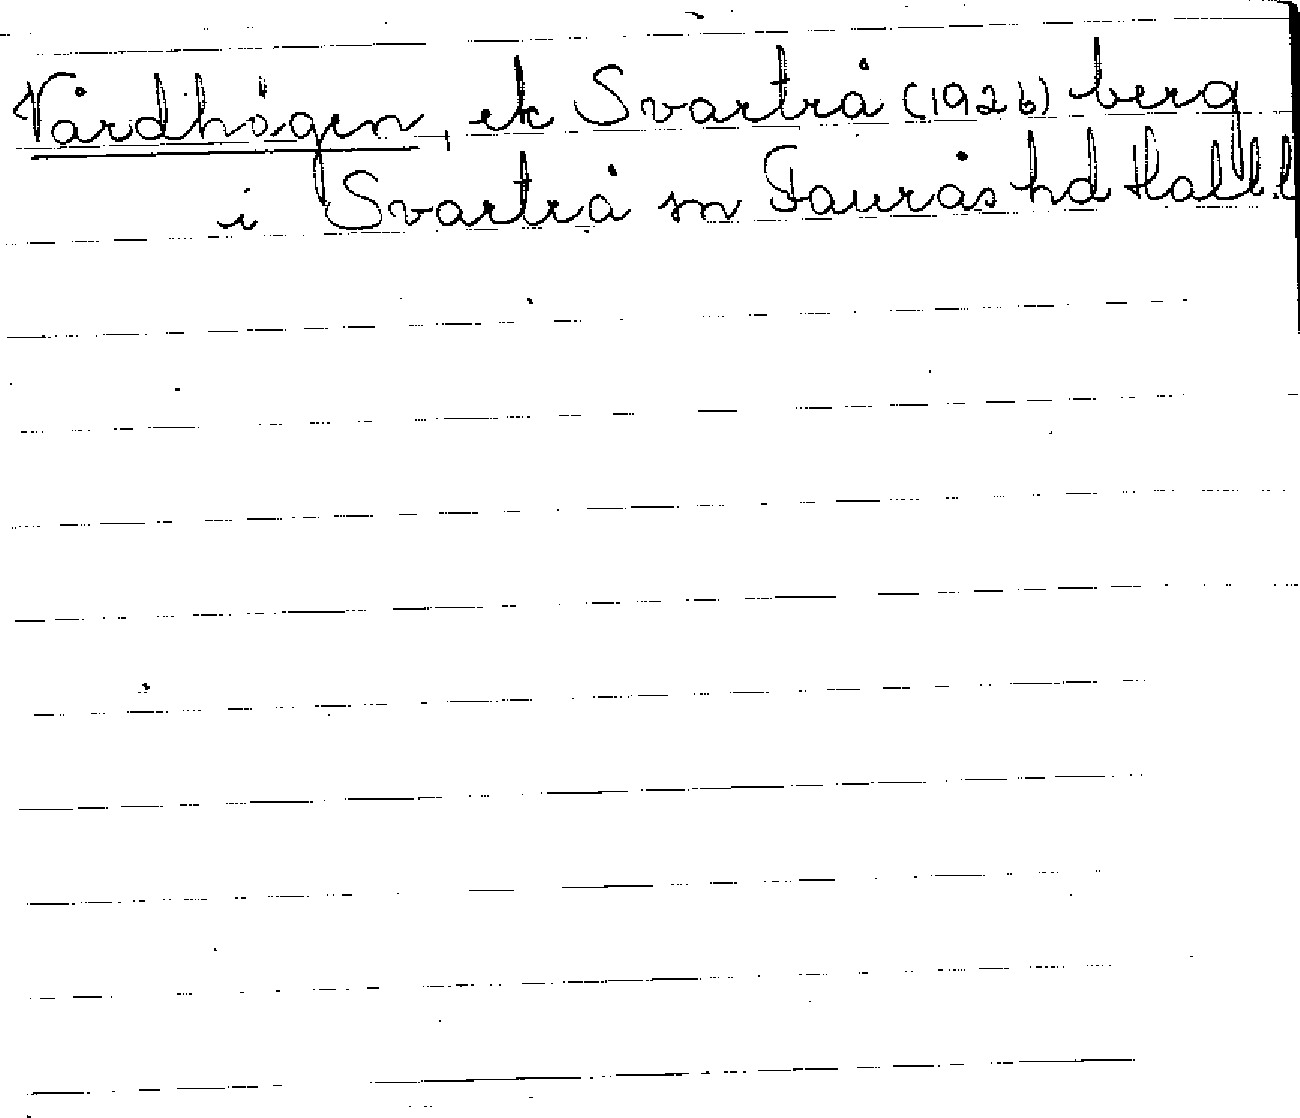 Vårdhögen, ek Svartrå (1926) berg
i Svartrå sn Faurås hd Hall l